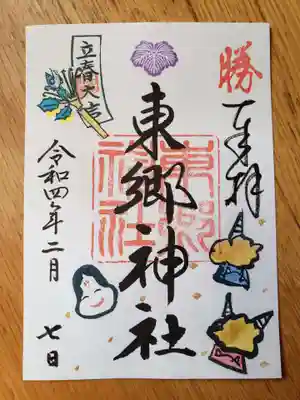 勝
奉拝
東郷神社
東郷神社
立春大吉
令和四年二月
七日